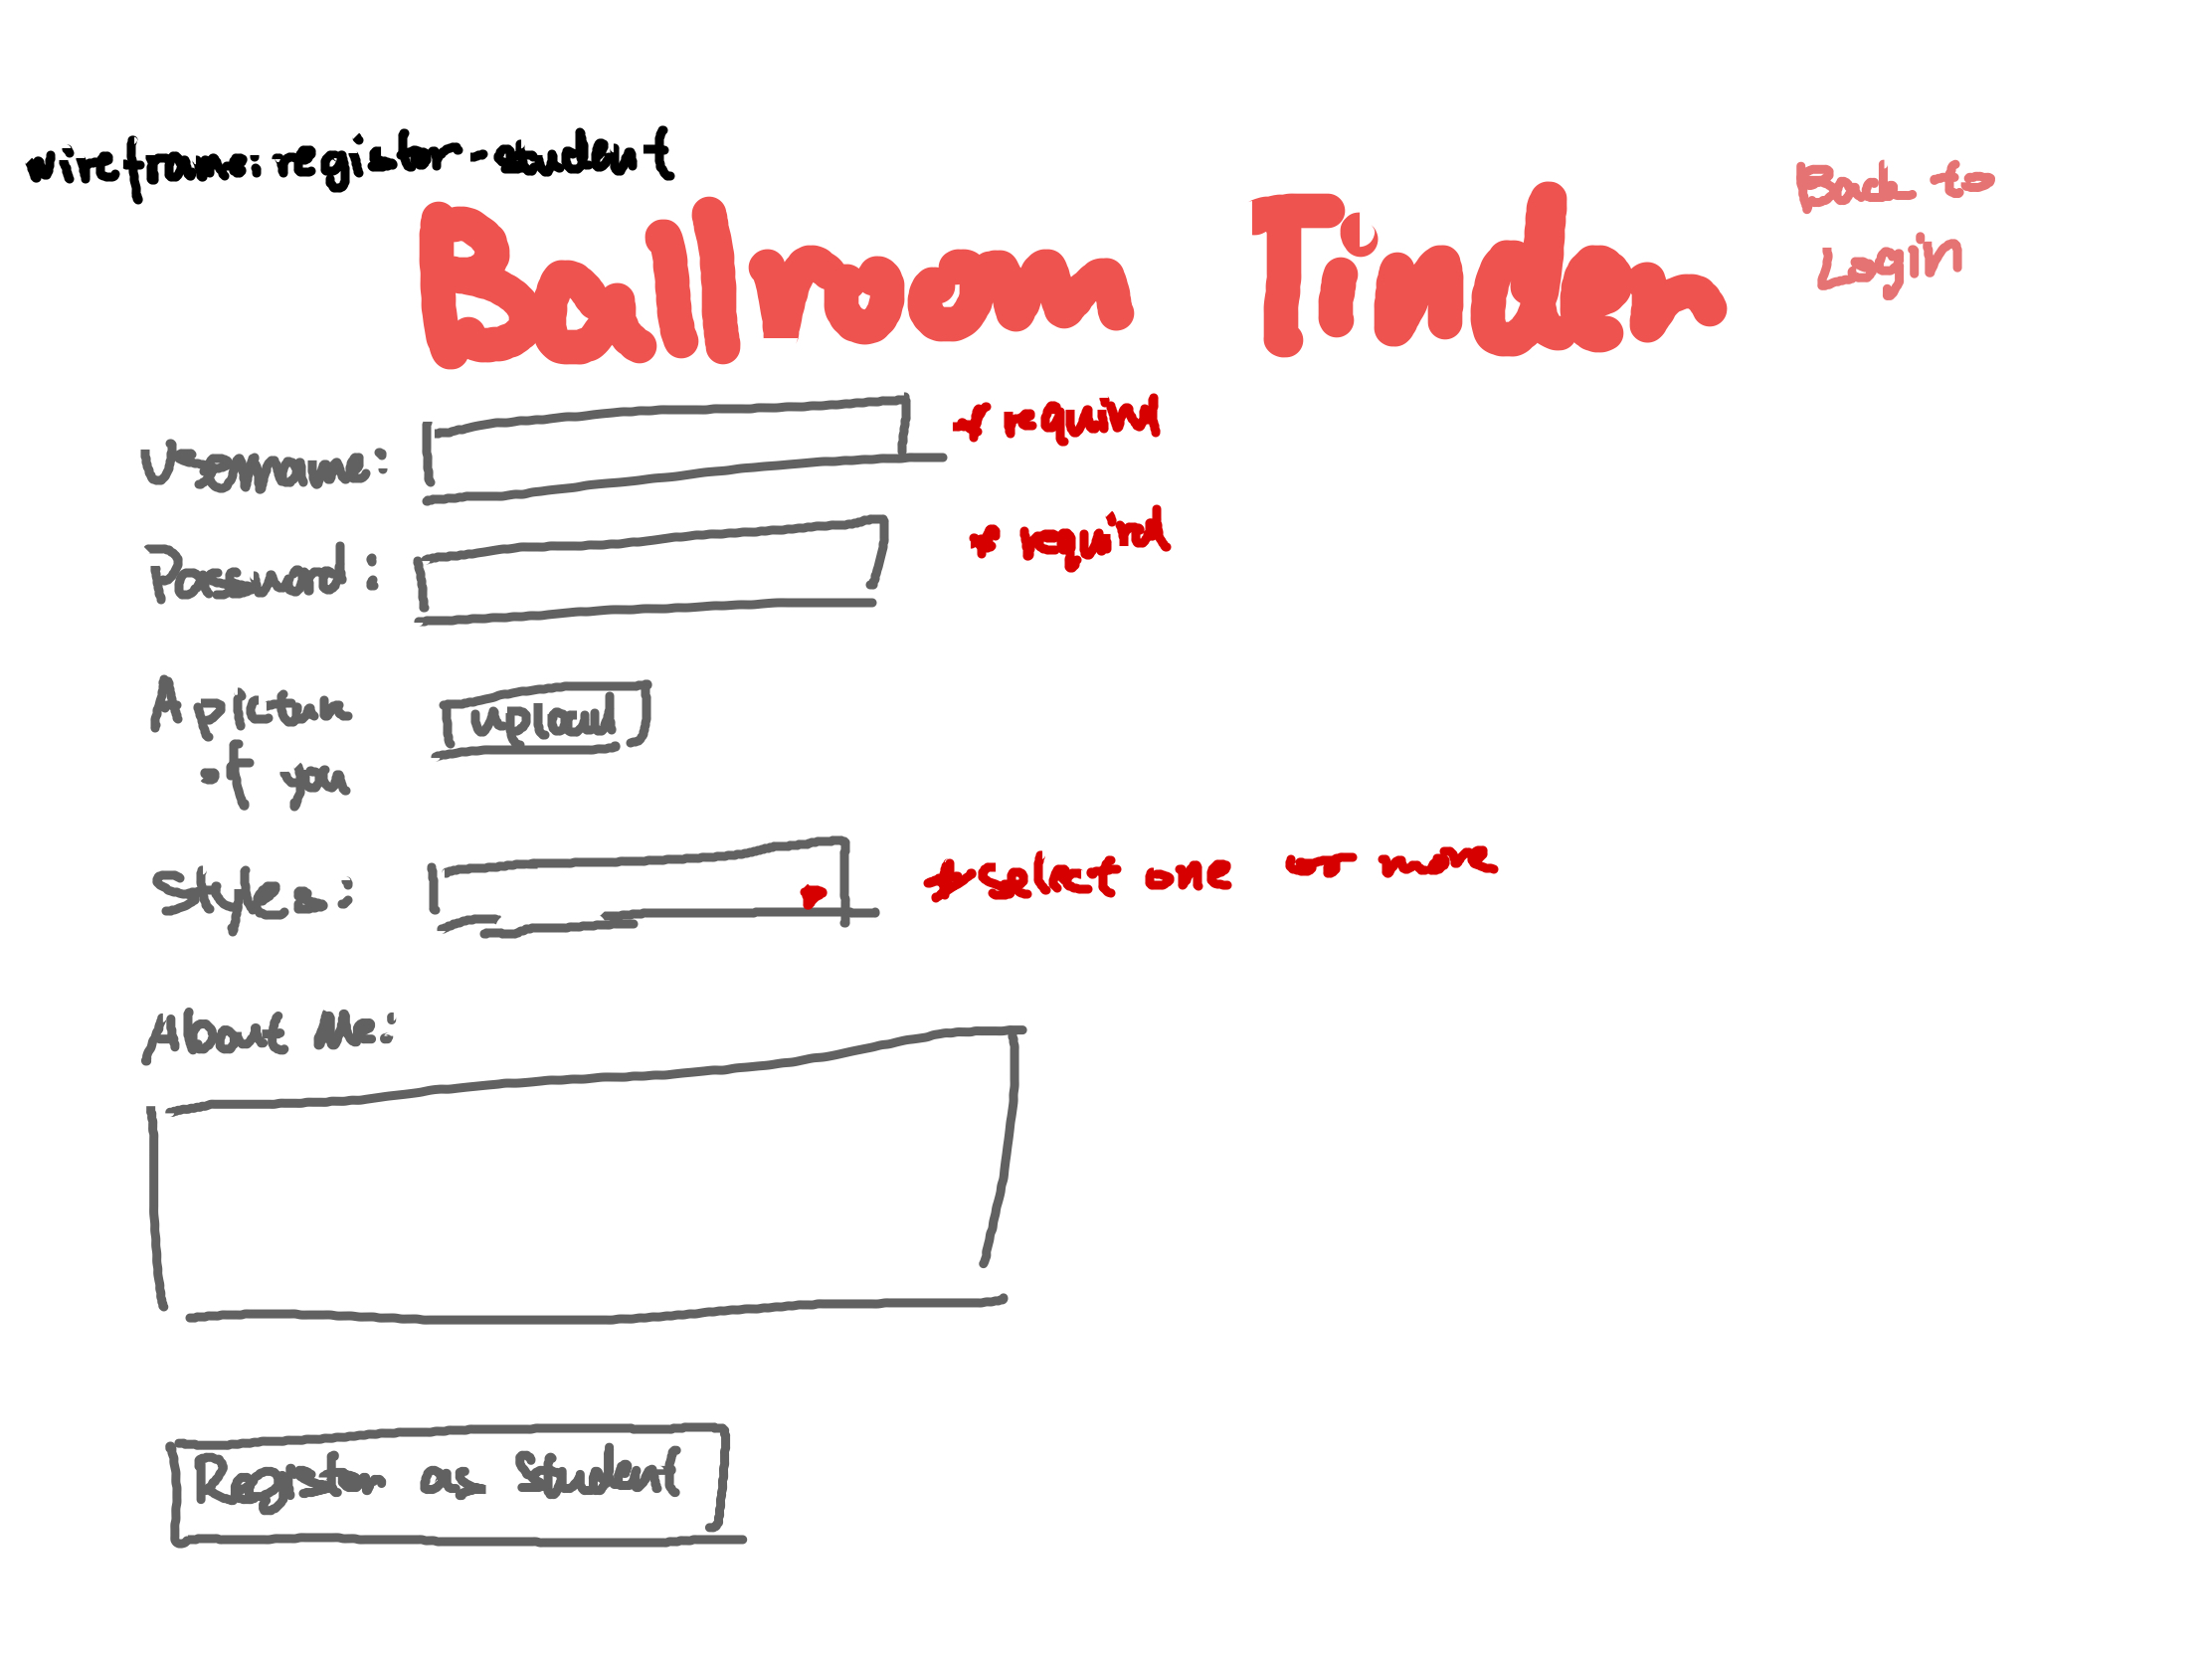 wireframe: register-student
Back to
Login
Ballroom Tinder
Username:
* required
Password:
* required
A picture
of you
upload
Styles:
* select one or more
About Me:
Register as Student